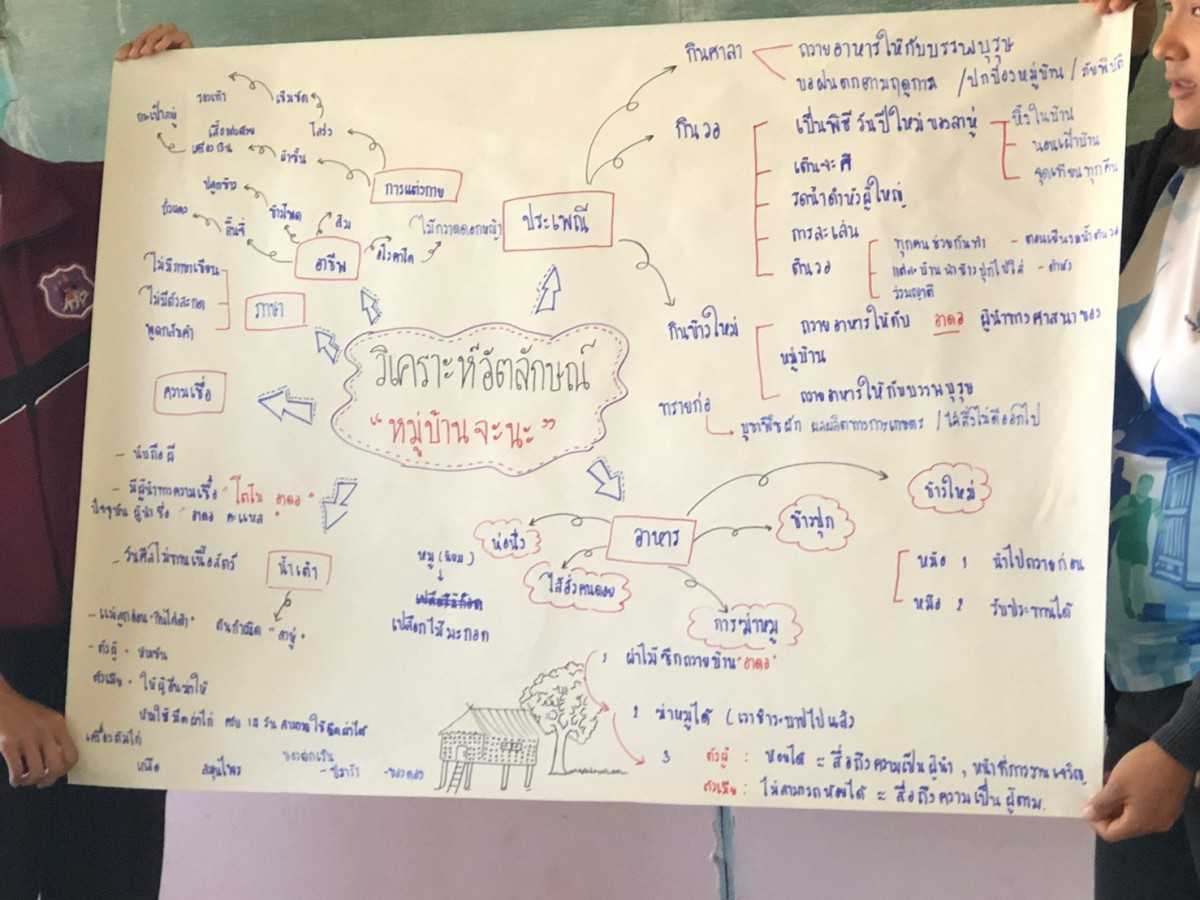 วิเคราะห์อัตลักษณ์
"หมู่บ้านจะนะ"
ประเพณี
กินศาลา
ถวายอาหารให้กับบรรพบุรุษ
ขอฝนตกตามฤดูกาล /ปกป้องหมู่บ้าน / ภัยพิบัติ
กินวอ
เป็นพิธีวันปีใหม่ของลาหู่
หิ้งในบ้าน
นอนเฝ้าบ้าน
จุดเทียนทุกคืน
เต้นจะคึ
รดน้ำดำหัวผู้ใหญ่
การละเล่น
ต้นวอ
ทุกคนช่วยกันทำ
แต่ละบ้านนำข้าวปุกไปใส่ - ดำหัว
รวมญาติ
กินข้าวใหม่
ถวายอาหารให้กับ อาดอ ผู้นำทางศาสนาของ
หมู่บ้าน
ถวายอาหารให้กับบรรพบุรุษ
ทรายก่อ
บูชาพืชผัก ผลผลิตทางการเกษตร /ไล่สิ่งไม่ดีออกไป
การแต่งกาย
รองเท้า
เข็มขัด
กำไร
ผ้าซิ่น
เครื่องเงิน
อาชีพ
ปลูกข้าว
ข้าวโพด
ส้ม
ลิ้นจี่
อโวคาโด
ไม้กวาดดอกหญ้า
ภาษา
ไม่มีภาษาเขียน
ไม่มีตัวสะกด
พูดกลับคำ
ความเชื่อ
- นับถือผี
- มีผู้นำทางความเชื่อ "โตโบ อาดอ"
ปัจจุบัน ผู้นำชื่อ "อาดอ
- วันศีลไม่ทานเนื้อสัตว์
น้ำเต้า
ต้นกำเนิด "ลาหู่"
- ตัวผู้ =
ตัวเมีย = ให้ผู้อื่นฆ่าให้
เหลือ สมุนไพร
อาหาร
ห่อนึ่ง
หมู (นิยม)
เปลือกไม้มะกอก
ไส้อั่วคนดอย
ข้าวใหม่
หม้อ 1 นำไปถวายก่อน
หม้อ 2 รับประทานได้
ข้าวปุก
การฆ่าหมู
1 ผ่าไม้ซีกถวายบ้าน "อาดอ"
2 ฆ่าหมูได้ (เอาข้าวะบาปไปแล้ว
3 ตัวผู้ : ห้อยได้ = สื่อถึงความเป็นผู้นำ , หน้าที่การงานเจริญ
ตัวเมีย : ไม่สามารถห้อยได้ = สื่อถึงความเป็นผู้ตาม.